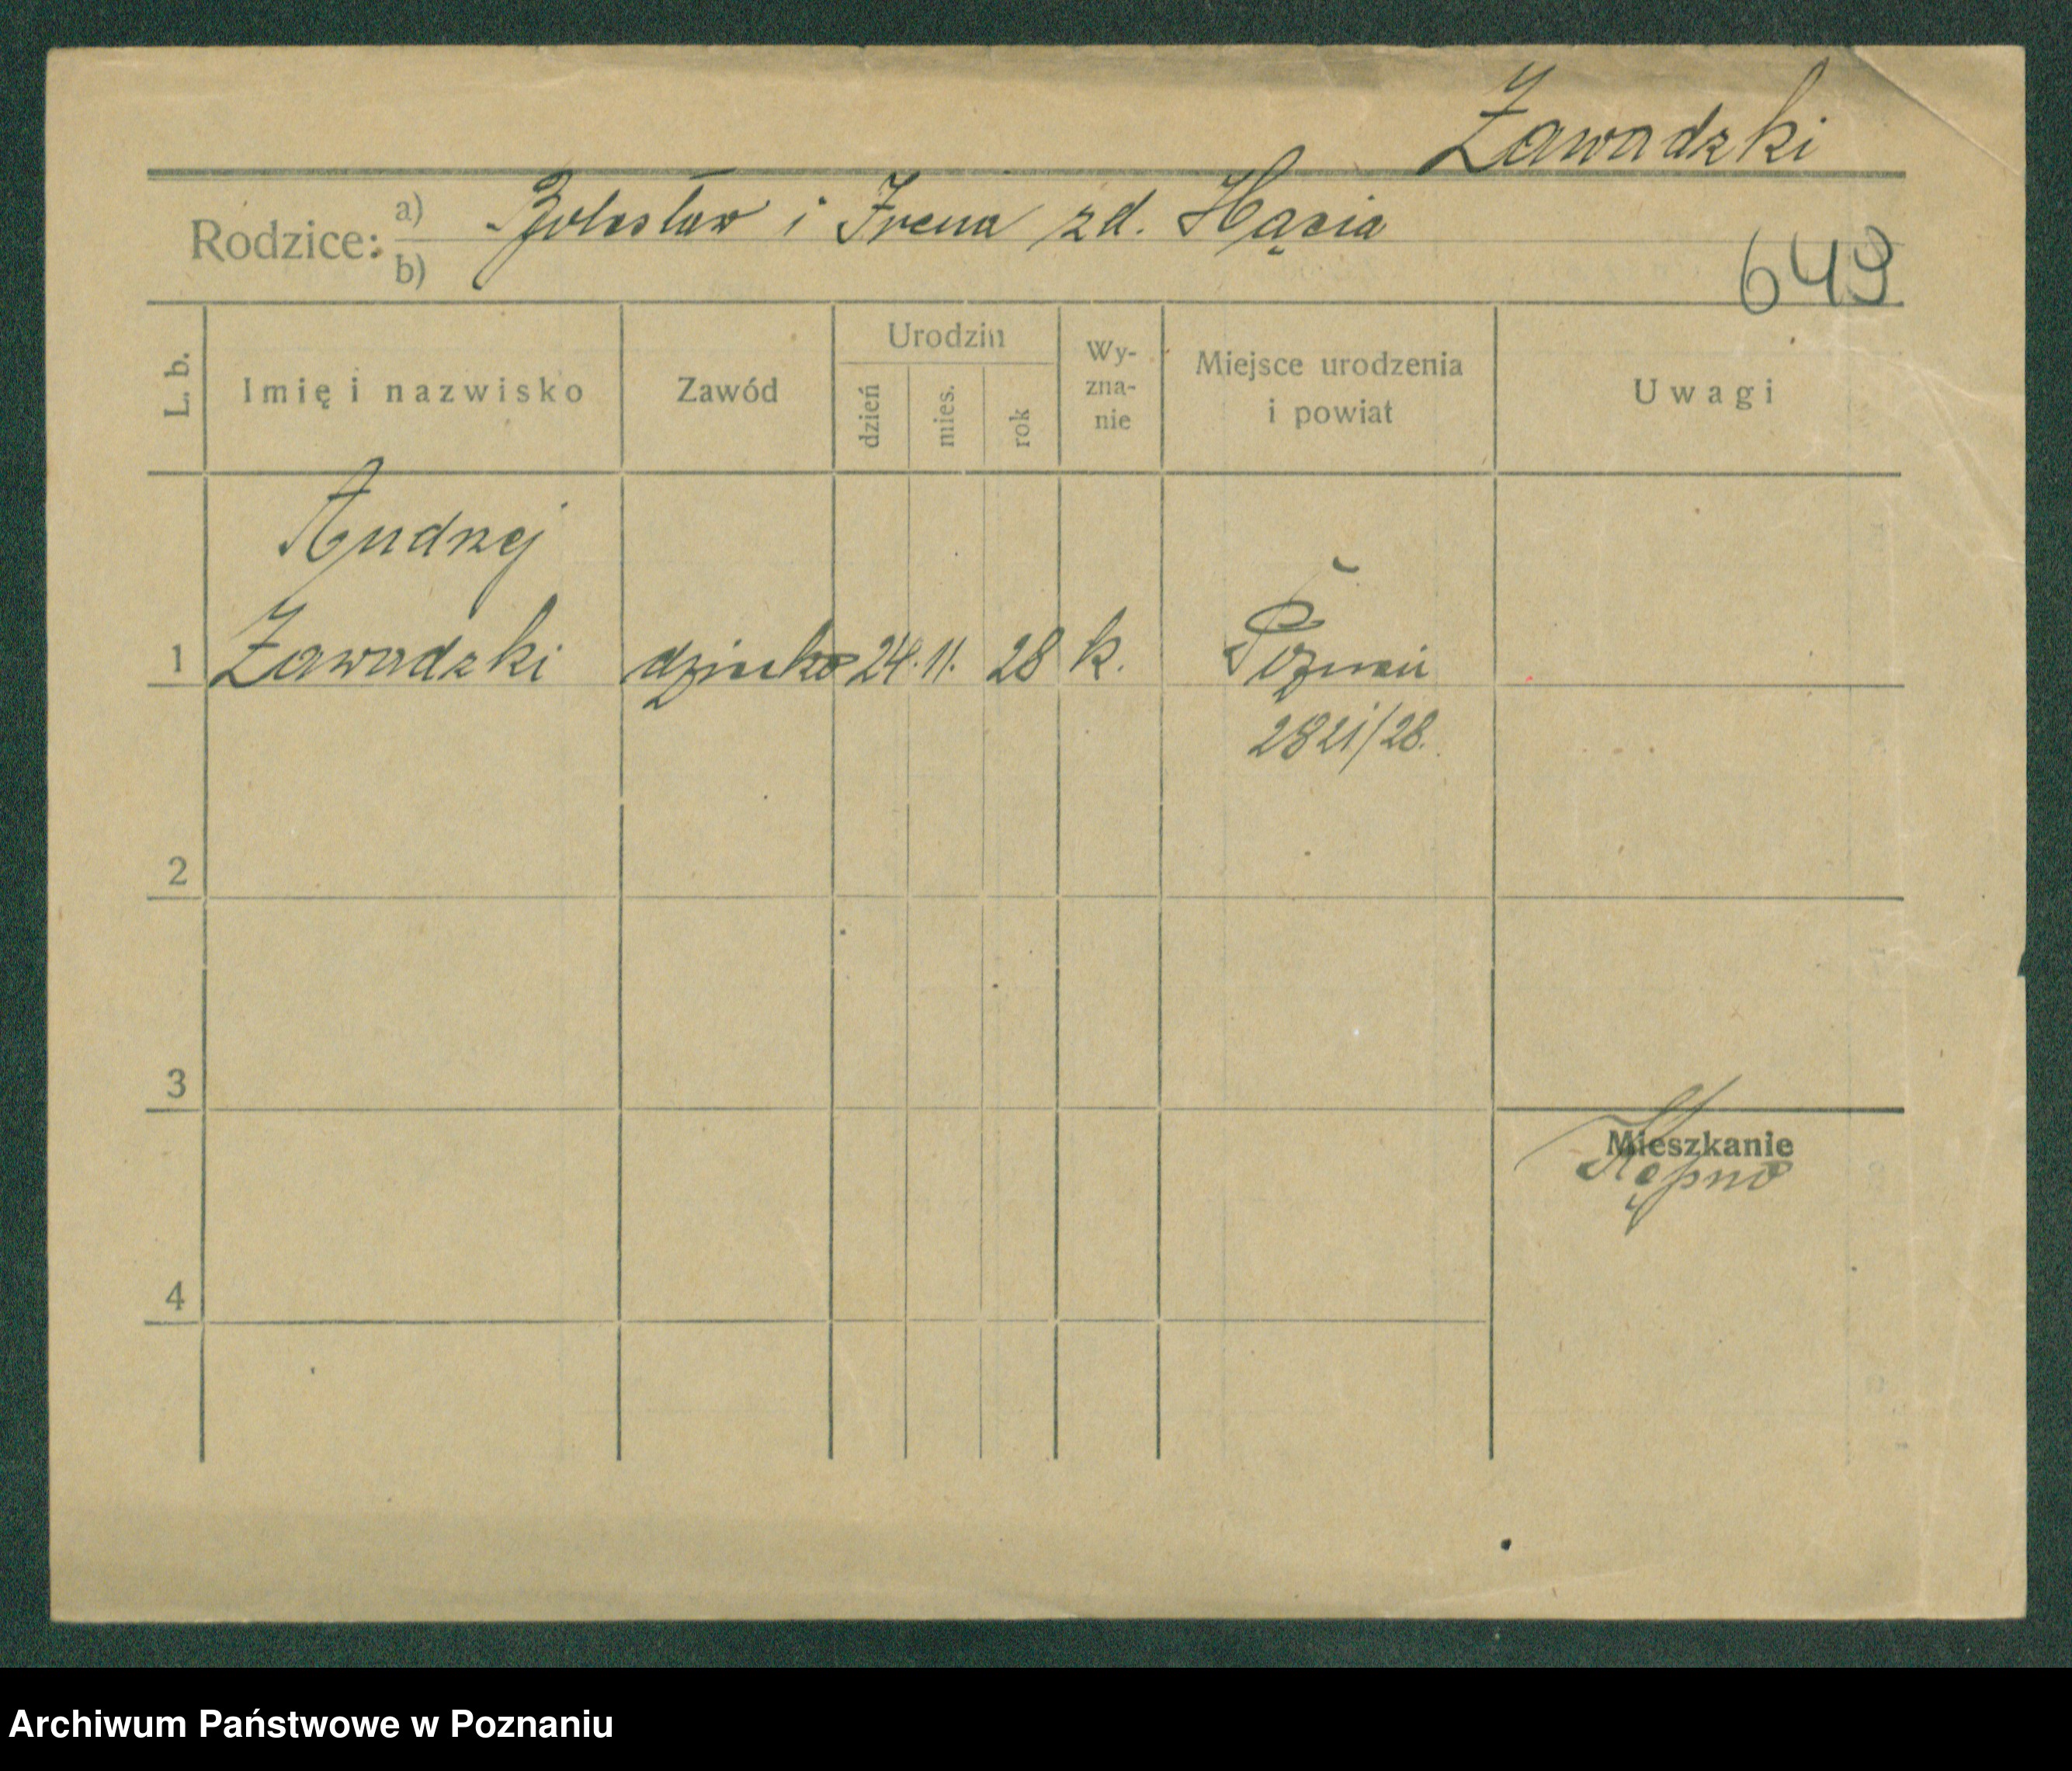 Zawadzki
Rodzice: a) Bolesław i Irena zd. Hącia
b)
649
L. b. Imię i nazwisko Zawód Urodzin dzień mies. rok Wy-zna-nie Miejsce urodzenia i powiat Uwagi
Andrzej
1 Zawadzki dziecko 24. 11. 28 k. Poznań
2821/28.
2
3
Mieszkanie
Kępno
4
Archiwum Państwowe w Poznaniu